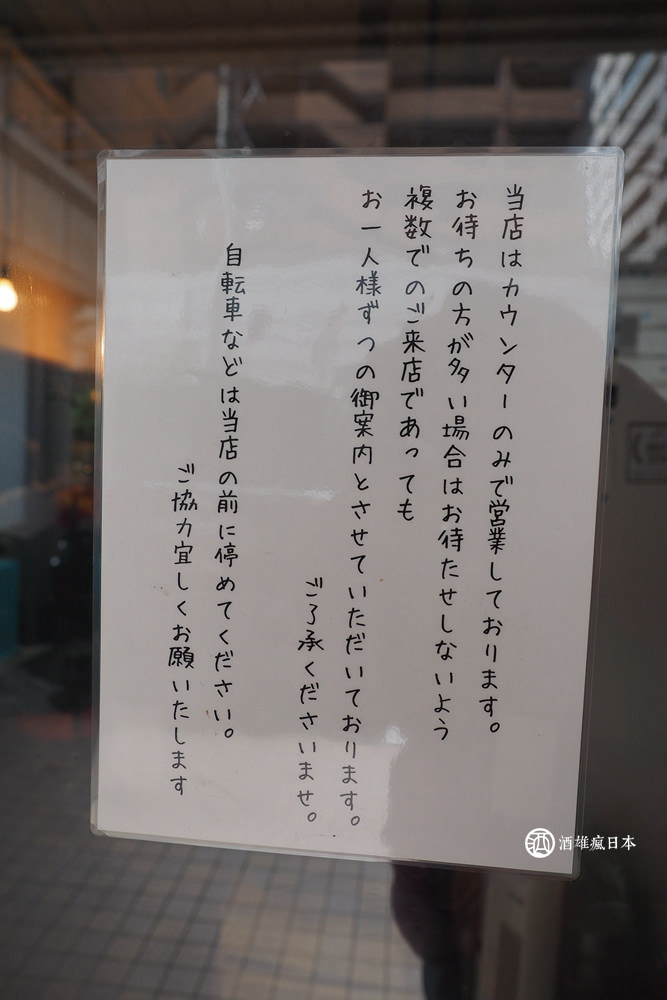 当店はカウンターのみで営業しております。
お待ちの方が多い場合はお待たせしないよう
複数でのご来店であっても
お一人様ずつの御案内とさせていただいております。
ご了承くださいませ。
自転車などは当店の前に停めてください。
ご協力宜しくお願いたします
酒雄瘋日本